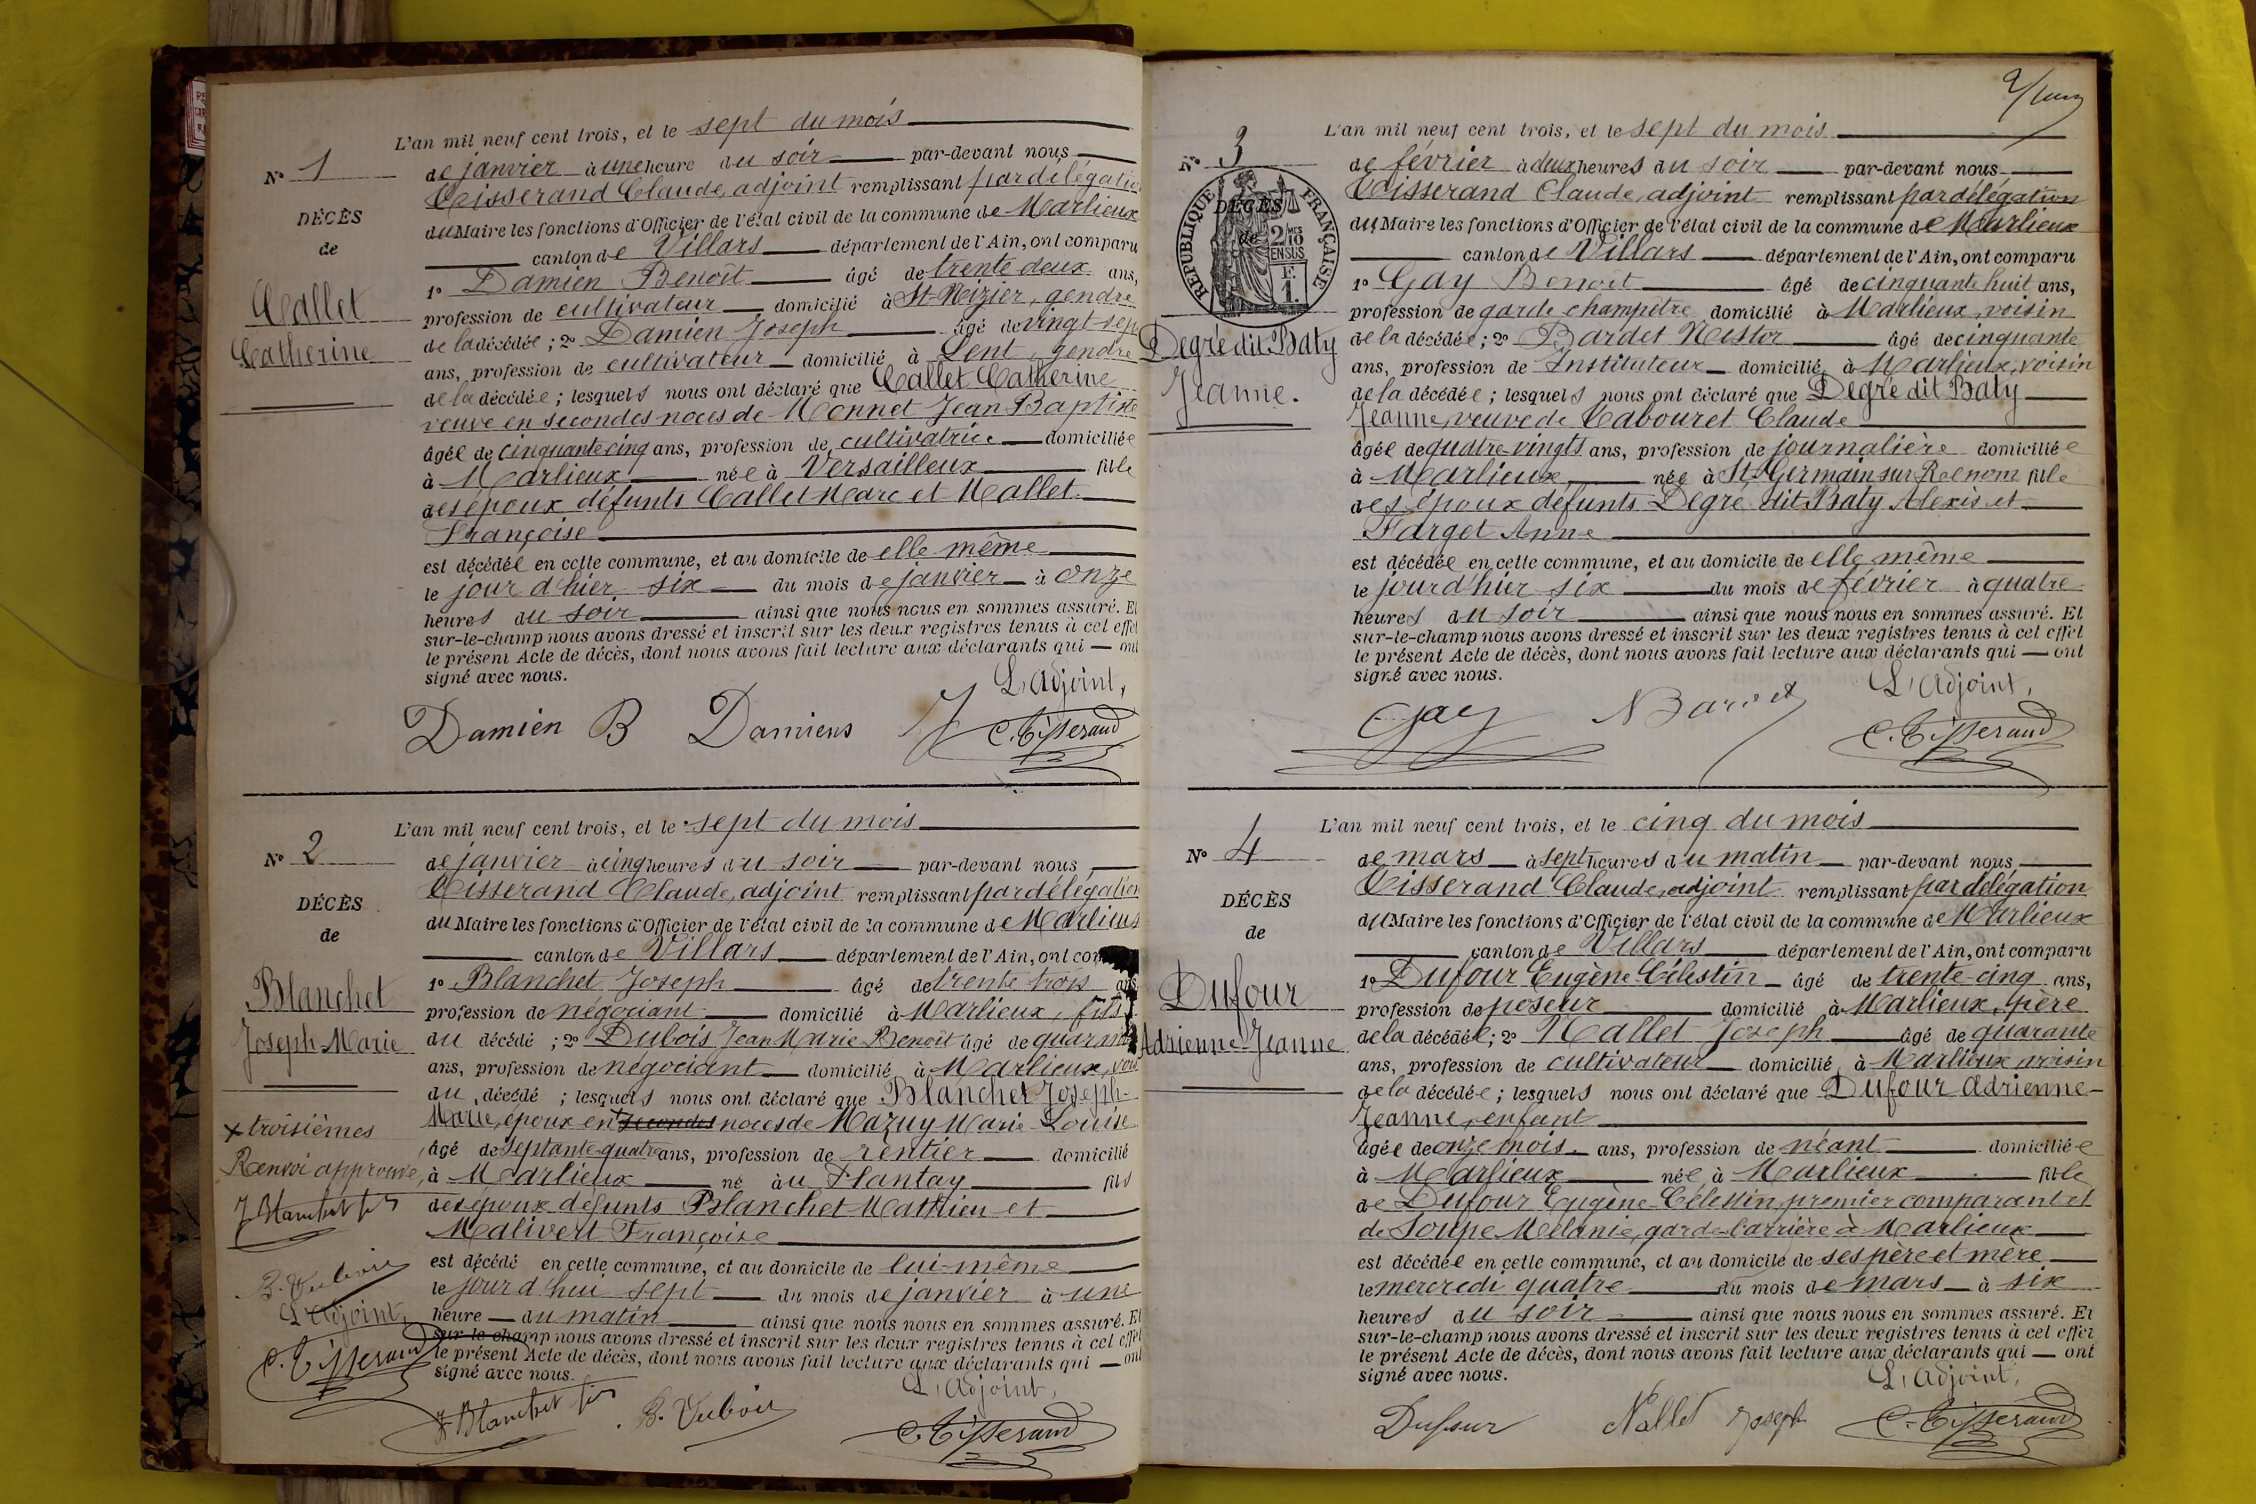 N° 1
DÉCÈS
de
Callet
Catherine
L'an mil neuf cent trois, et le sept du mois
de janvier à une heure du soir par-devant nous
Tisserand Claude, adjoint remplissant par délégation
du Maire les fonctions d'Officier de l'état civil de la commune de Marlieux
canton de Villars département de l'Ain, ont comparu
1° Damien Benoît âgé de trente deux ans,
profession de cultivateur domicilié à St-Nizier, gendre
de la décédée ; 2° Damien Joseph âgé de vingt-sept
ans, profession de cultivateur domicilié à Lent, gendre
de la décédée ; lesquels nous ont déclaré que Callet Catherine
veuve en secondes noces de Monnet Jean Baptiste
âgée de cinquante cinq ans, profession de cultivatrice domiciliée
à Marlieux née à Versailleux fille
des époux défunts Callet Marc et Mallet
Françoise
est décédée en cette commune, et au domicile de elle même
le jour d'hier six du mois de janvier à onze
heures du soir ainsi que nous nous en sommes assuré. Et
sur-le-champ nous avons dressé et inscrit sur les deux registres tenus à cet effet
le présent Acte de décès, dont nous avons fait lecture aux déclarants qui ont
signé avec nous.
L'Adjoint,
Damien B Damiens J C. Tisserand
N° 2
DÉCÈS
de
Blanchet
Joseph-Marie
x troisièmes
Renvoi approuvé,
J. Blanchet fils
B. Dubois
L'Adjoint,
C. Tisserand
L'an mil neuf cent trois, et le sept du mois
de janvier à cinq heures du soir par-devant nous
Tisserand Claude, adjoint remplissant par délégation
du Maire les fonctions d'Officier de l'état civil de la commune de Marlieux
canton de Villars département de l'Ain, ont com
1° Blanchet Joseph âgé de trente trois ans,
profession de négociant domicilié à Marlieux, fils
du décédé ; 2° Dubois Jean Marie Benoît âgé de quarante
ans, profession de négociant domicilié à Marlieux, vois
du décédé ; lesquels nous ont déclaré que Blanchet Joseph-
Marie, époux en x secondes noces de Mazuy Marie-Louise
âgé de septante-quatre ans, profession de rentier domicilié
à Marlieux né au Plantay fils
des époux défunts Blanchet Mathieu et
Malivert Françoise
est décédé en cette commune, et au domicile de lui-même
le jour d'hui sept du mois de janvier à une
heure du matin ainsi que nous nous en sommes assuré. Et
sur-le-champ nous avons dressé et inscrit sur les deux registres tenus à cet effet
le présent Acte de décès, dont nous avons fait lecture aux déclarants qui ont
signé avec nous.
L'Adjoint,
J. Blanchet fils B. Dubois C. Tisserand
N° 3
RÉPUBLIQUE FRANÇAISE
2 MES
10
EN SUS
F.
1.
DÉCÈS
de
Degré dit Baty
Jeanne.
L'an mil neuf cent trois, et le sept du mois
de février à deux heures du soir par-devant nous
Tisserand Claude, adjoint remplissant par délégation
du Maire les fonctions d'Officier de l'état civil de la commune de Marlieux
canton de Villars département de l'Ain, ont comparu
1° Gay Benoît âgé de cinquante huit ans,
profession de garde champêtre domicilié à Marlieux, voisin
de la décédée ; 2° Bardet Nestor âgé de cinquante
ans, profession de Instituteur domicilié à Marlieux, voisin
de la décédée ; lesquels nous ont déclaré que Degré dit Baty
Jeanne, veuve de Cabouret Claude
âgée de quatre-vingts ans, profession de journalière domiciliée
à Marlieux née à St-Germain sur Renom fille
des époux défunts Degré dit Baty Alexis et
Farget Anne
est décédée en cette commune, et au domicile de elle même
le jour d'hier six du mois de février à quatre
heures du soir ainsi que nous nous en sommes assuré. Et
sur-le-champ nous avons dressé et inscrit sur les deux registres tenus à cet effet
le présent Acte de décès, dont nous avons fait lecture aux déclarants qui ont
signé avec nous.
L'Adjoint,
Gay N Bardet C. Tisserand
N° 4
DÉCÈS
de
Dufour
Adrienne-Jeanne
L'an mil neuf cent trois, et le cinq du mois
de mars à sept heures du matin par-devant nous
Tisserand Claude, adjoint remplissant par délégation
du Maire les fonctions d'Officier de l'état civil de la commune de Marlieux
canton de Villars département de l'Ain, ont comparu
1° Dufour Eugène-Célestin âgé de trente-cinq ans,
profession de poseur domicilié à Marlieux, père
de la décédée ; 2° Nallet Joseph âgé de quarante
ans, profession de cultivateur domicilié à Marlieux, voisin
de la décédée ; lesquels nous ont déclaré que Dufour Adrienne-
Jeanne, enfant
âgée de onze mois. ans, profession de néant domiciliée
à Marlieux née à Marlieux fille
de Dufour Eugène-Célestin, premier comparant et
de Soupe Mélanie, garde-barrière à Marlieux
est décédée en cette commune, et au domicile de ses père et mère
le mercredi quatre du mois de mars à six
heures du soir ainsi que nous nous en sommes assuré. Et
sur-le-champ nous avons dressé et inscrit sur les deux registres tenus à cet effet
le présent Acte de décès, dont nous avons fait lecture aux déclarants qui ont
signé avec nous.
L'Adjoint,
Dufour Nallet Joseph C. Tisserand